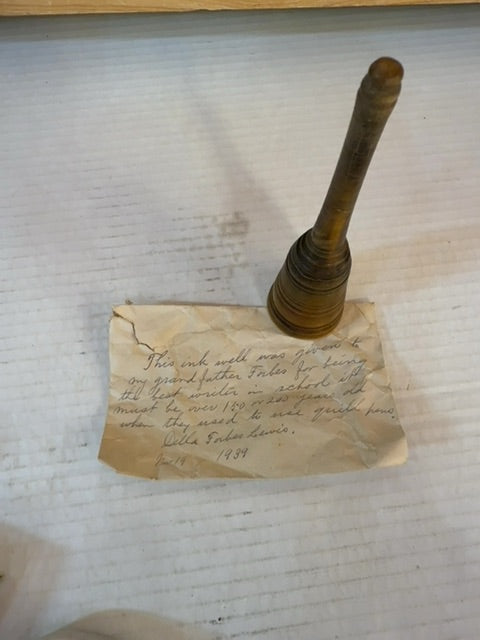 This ink well was given to
my grandfather Forbes for being
the best writer in school it
must be over 150 or 200 years old
when they used to use quill pens.
Della Forbes Lewis.
Nov 19 1939